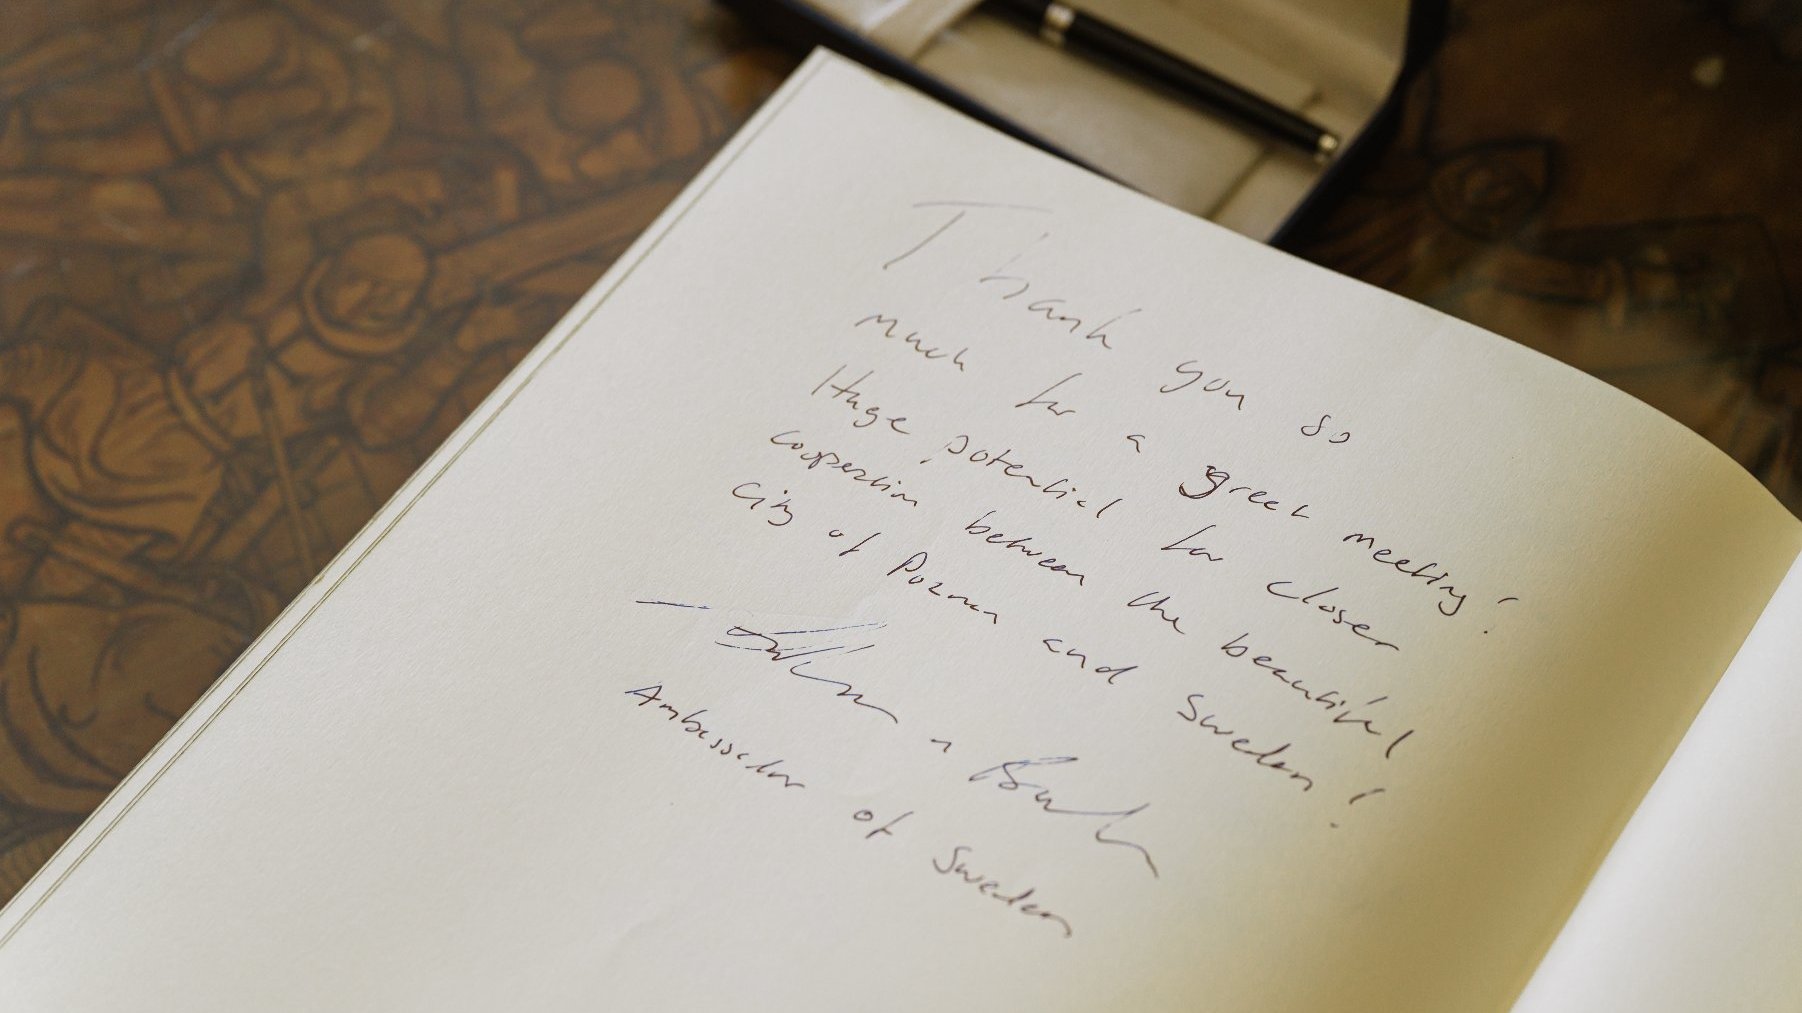 Thank you so
much for a great meeting!
Huge potential for closer
cooperation between the beautiful
City of Poznan and Sweden!
Ambassador of Sweden